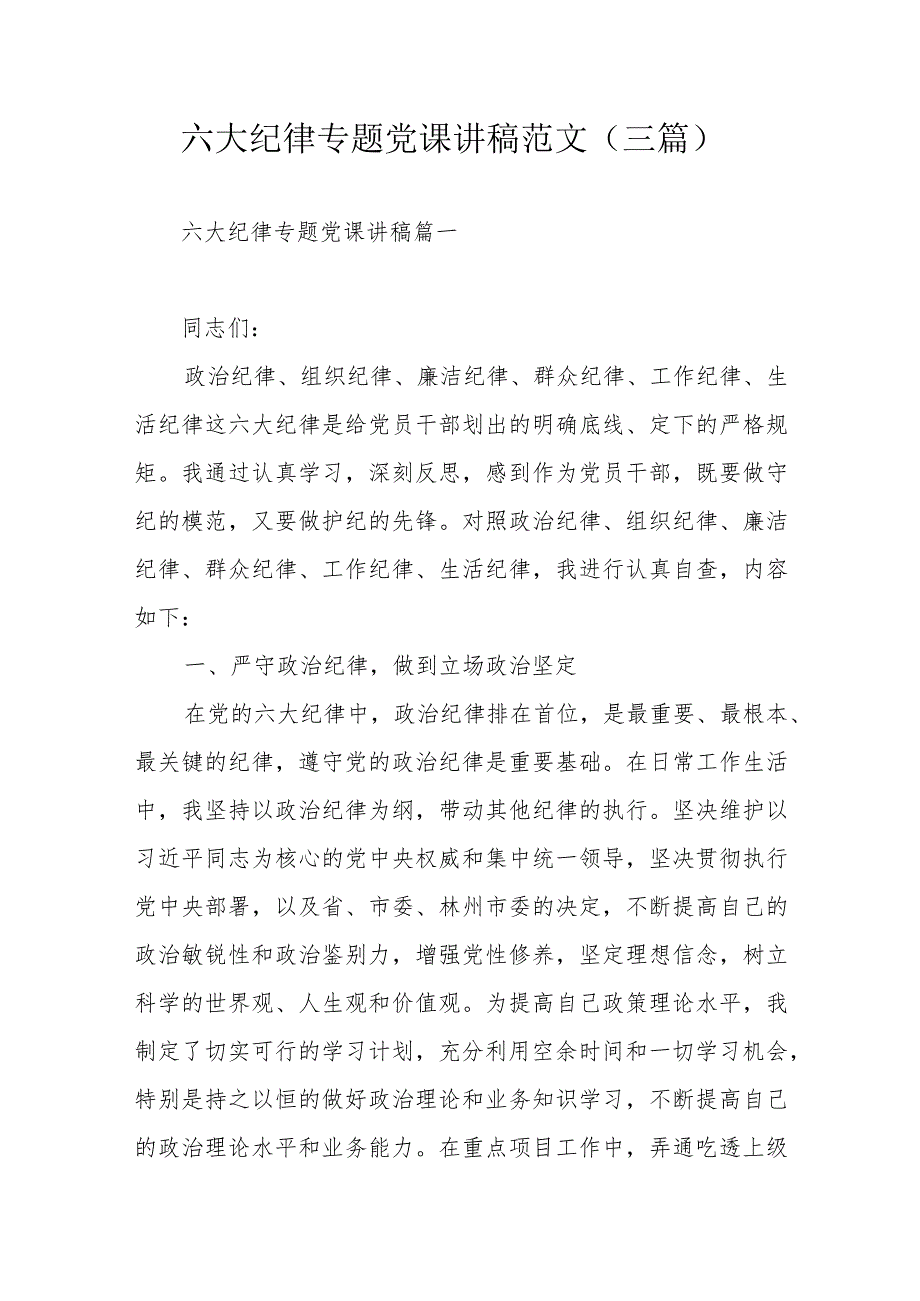 六大纪律专题党课讲稿范文（三篇）
六大纪律专题党课讲稿篇一
同志们：
政治纪律、组织纪律、廉洁纪律、群众纪律、工作纪律、生
活纪律这六大纪律是给党员干部划出的明确底线、定下的严格规
矩。我通过认真学习，深刻反思，感到作为党员干部，既要做守
纪的模范，又要做护纪的先锋。对照政治纪律、组织纪律、廉洁
纪律、群众纪律、工作纪律、生活纪律，我进行认真自查，内容
如下：
一、严守政治纪律，做到立场政治坚定
在党的六大纪律中，政治纪律排在首位，是最重要、最根本、
最关键的纪律，遵守党的政治纪律是重要基础。在日常工作生活
中，我坚持以政治纪律为纲，带动其他纪律的执行。坚决维护以
习近平同志为核心的党中央权威和集中统一领导，坚决贯彻执行
党中央部署，以及省、市委、林州市委的决定，不断提高自己的
政治敏锐性和政治鉴别力，增强党性修养，坚定理想信念，树立
科学的世界观、人生观和价值观。为提高自己政策理论水平，我
制定了切实可行的学习计划，充分利用空余时间和一切学习机会，
特别是持之以恒的做好政治理论和业务知识学习，不断提高自己
的政治理论水平和业务能力。在重点项目工作中，弄通吃透上级